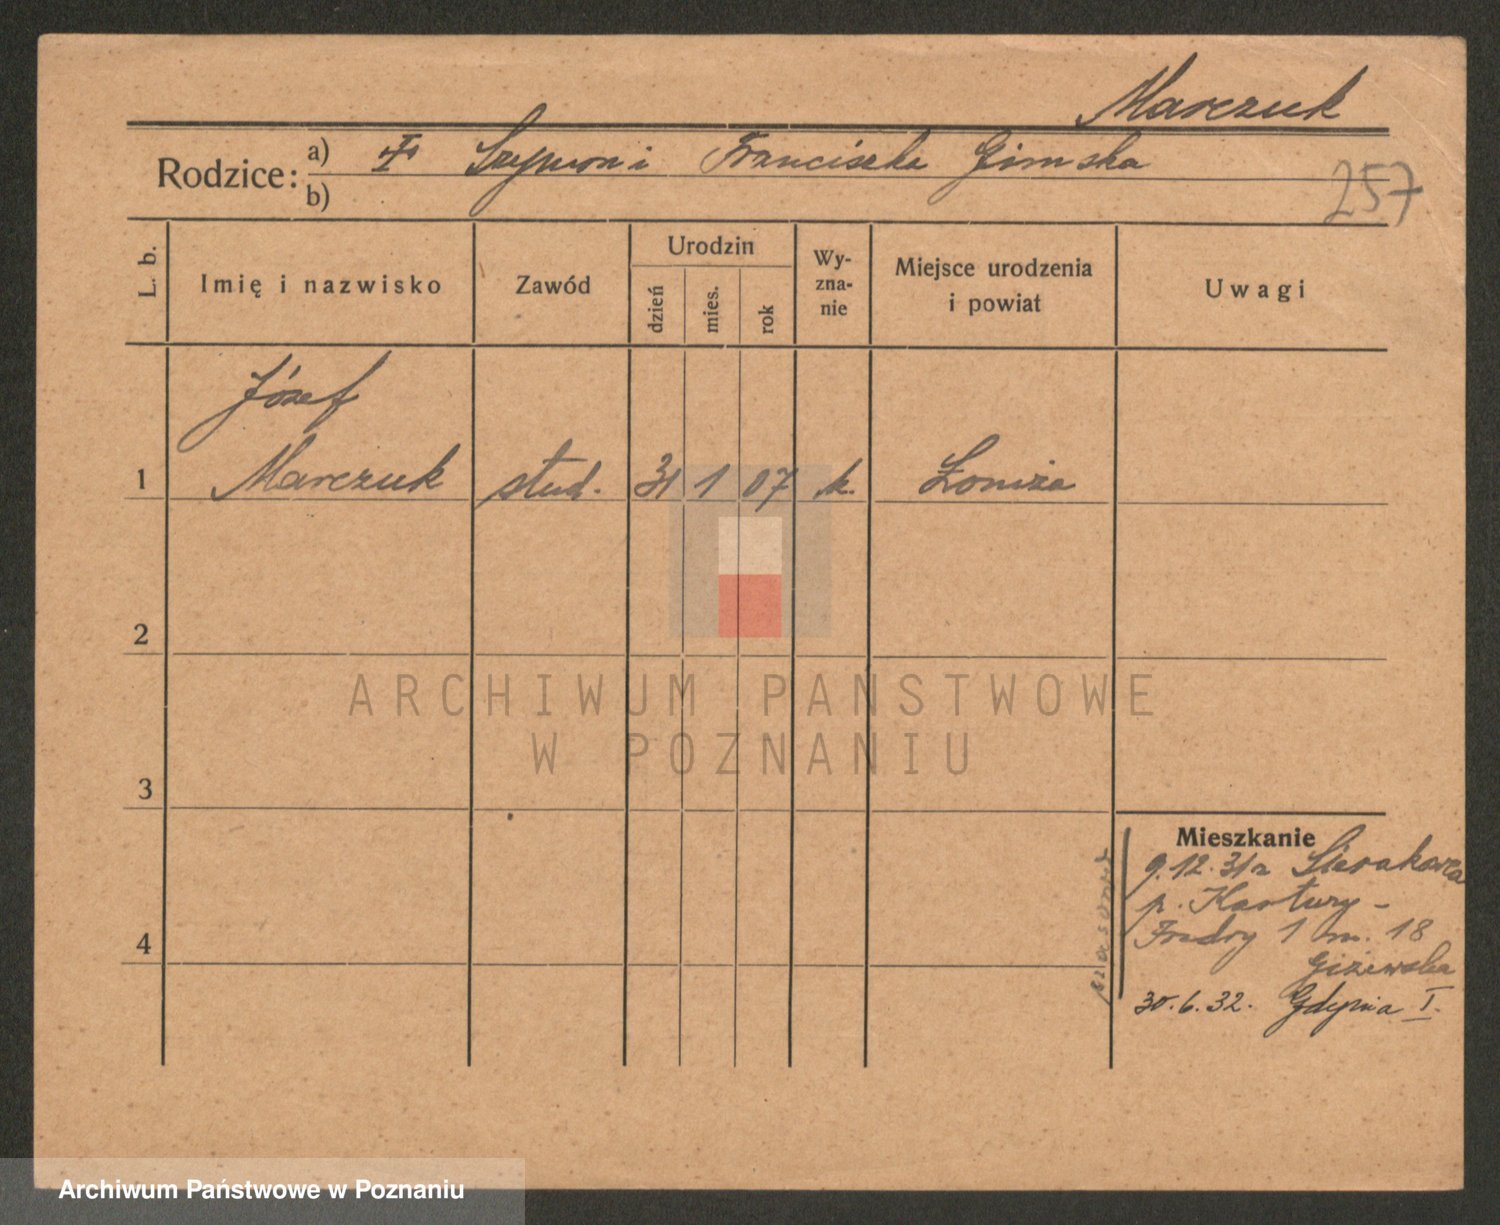 Marczuk
Rodzice: a) Szymon i Franciszka Gimska
b)
257
L. b.
Imię i nazwisko
Zawód
Urodzin
dzień
mies.
rok
Wy-
zna-
nie
Miejsce urodzenia
i powiat
Uwagi
Józef
1 Marczuk stud. 31 1 07 k. Łomża
2
3
4
Mieszkanie
9.12.31r Sierakowice
p. Kartuzy -
Fredry 1 m. 18
Giżewska
30.6.32. Gdynia I.
ARCHIWUM PAŃSTWOWE
W POZNANIU
Archiwum Państwowe w Poznaniu